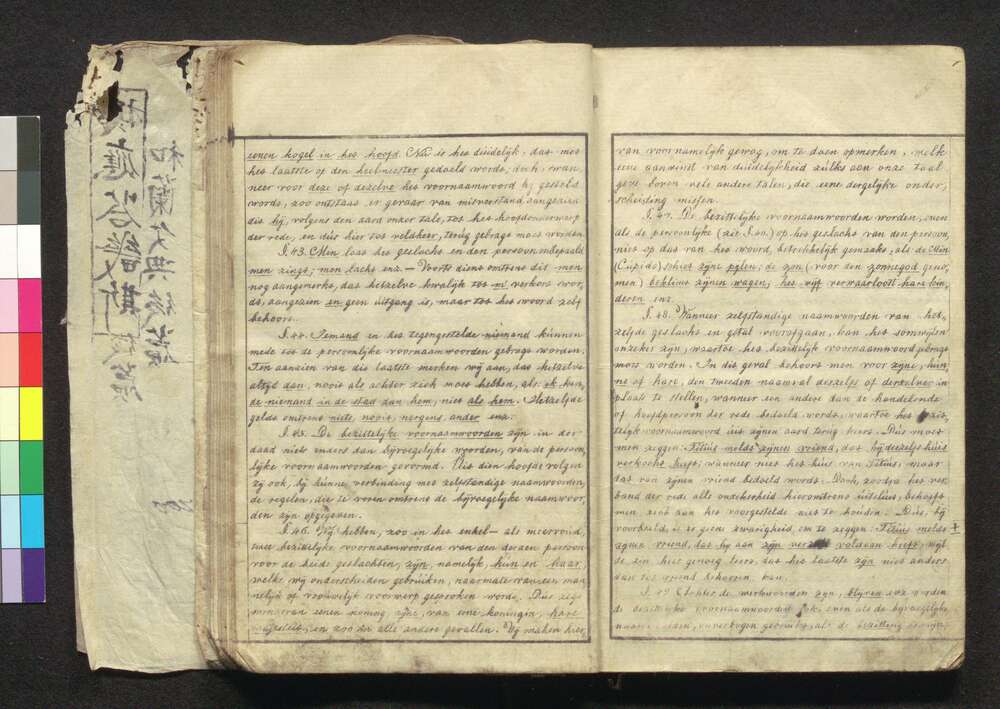 eenen kogel in het hoofd. Nu is het duidelijk, dat mos
het laatste op den heelmeester gedoeld wordt, doch, wan,
neer voor deze of dezelve het voornaamwoord hij gesteld
wordt, zoo ontstaat er gevaar van misverstand aangezien
dit hij, volgens den aard onzer tale, tot het hoofdonderwerp
der rede, en dus hier tot veldheer, terug gebragt moet worden.
§. 43. Men laat het geslacht en den persoon onbepaald
men zingt, men lacht enz. — Voorts dient omtrent dit men
nog aangemerkt, dat hetzelve kwalijk tot m' verkort wor,
dt, aangezien en geen uitgang is, maar tot het woord zelf
behoort.
§. 44. Iemand en het tegengestelde niemand kunnen
mede tot de persoonlijke voornaamwoorden gebragt worden.
Ten aanzien van die laatste merken wij aan, dat hetzelve
altijd dan, nooit als achter zich moet hebben, als: ik ken,
de niemand in de stad dan hem, niet als hem. Hetzelfde
geldt omtrent niets, nooit, nergens, ander enz.
§. 45. De bezittelijke voornaamwoorden zijn in der
daad niet anders dan bijvoegelijke woorden, van de persoon,
lijke voornaamwoorden gevormd. Uit dien hoofde volgen
zij ook, bij hunne verbinding met zelfstandige naamwoorden,
de regelen, die te voren omtrent de bijvoegelijke naamwoor,
den zijn opgegeven.
§. 46. Wij hebben, zoo in het enkel- als meervoud,
twee bezittelijke voornaamwoorden van den derden persoon
voor de beide geslachten, zijn, namelijk, hun en haar,
welke wij onderscheiden gebruiken, naarmate van een man
nelijk of vrouwelijk voorwerp gesproken wordt. Dus zegt
men van eenen koning, zijne, van eene koningin, hare
majesteit, en zoo in alle andere gevallen. Wij maken hier
van voornamelijk gewag, om te doen opmerken, welk
eene aanwinst van duidelijkheid zulks aan onze taal
geve boven vele andere talen, die eene dergelijke onder,
scheiding missen.
§. 47. De bezittelijke voornaamwoorden worden, even
als de persoonlijke (zie §. 40.) op het geslacht van den persoon,
niet op dat van het woord, betrekkelijk gemaakt, als de Min
(Cupido) schiet zijne pijlen, de zon (voor den zonnegod geno,
men) beklimt zijnen wagen, het wijf verwaarloost hare kin,
deren enz.
§. 48. Wanneer zelfstandige naamwoorden van het,
zelfde geslacht en getal voorafgaan, kan het somwijlen
onzeker zijn, waartoe het bezittelijk voornaamwoord gebragt
moet worden. In dit geval behoort men voor zijne, hun,
ne of hare, den tweeden naamval deszelfs of derzelver in
plaats te stellen, wanneer een andere dan de handelende
of hoofdpersoon der rede bedoeld wordt, waartoe het bezit,
telijk voornaamwoord uit zijnen aard terug keert. Dus moet
men zeggen: Titius meldt zijnen vriend, dat hij deszelfs huis
verkocht heeft, wanneer niet het huis van Titius, maar
dat van zijnen vriend bedoeld wordt. Doch, zoodra het ver,
band der rede alle onzekerheid hieromtrent uitsluit, behoeft
men zich aan het voorgestelde niet te houden. Dus, bij
voorbeeld is er geene zwarigheid, om te zeggen: Titius meldt
zijnen vriend, dat hij aan zijn verzoek voldaan heeft, wijl
de zin hier genoeg leert, dat het laatste zijn niet anders
dan tot vriend behooren kan.
§. 49. Achter de werkwoorden zijn, blijven enz. worden
de bezittelijke voornaamwoorden ook, even als de bijvoegelijke
naamwoorden, onverbogen gebruikt, als de bezitting is mijn,